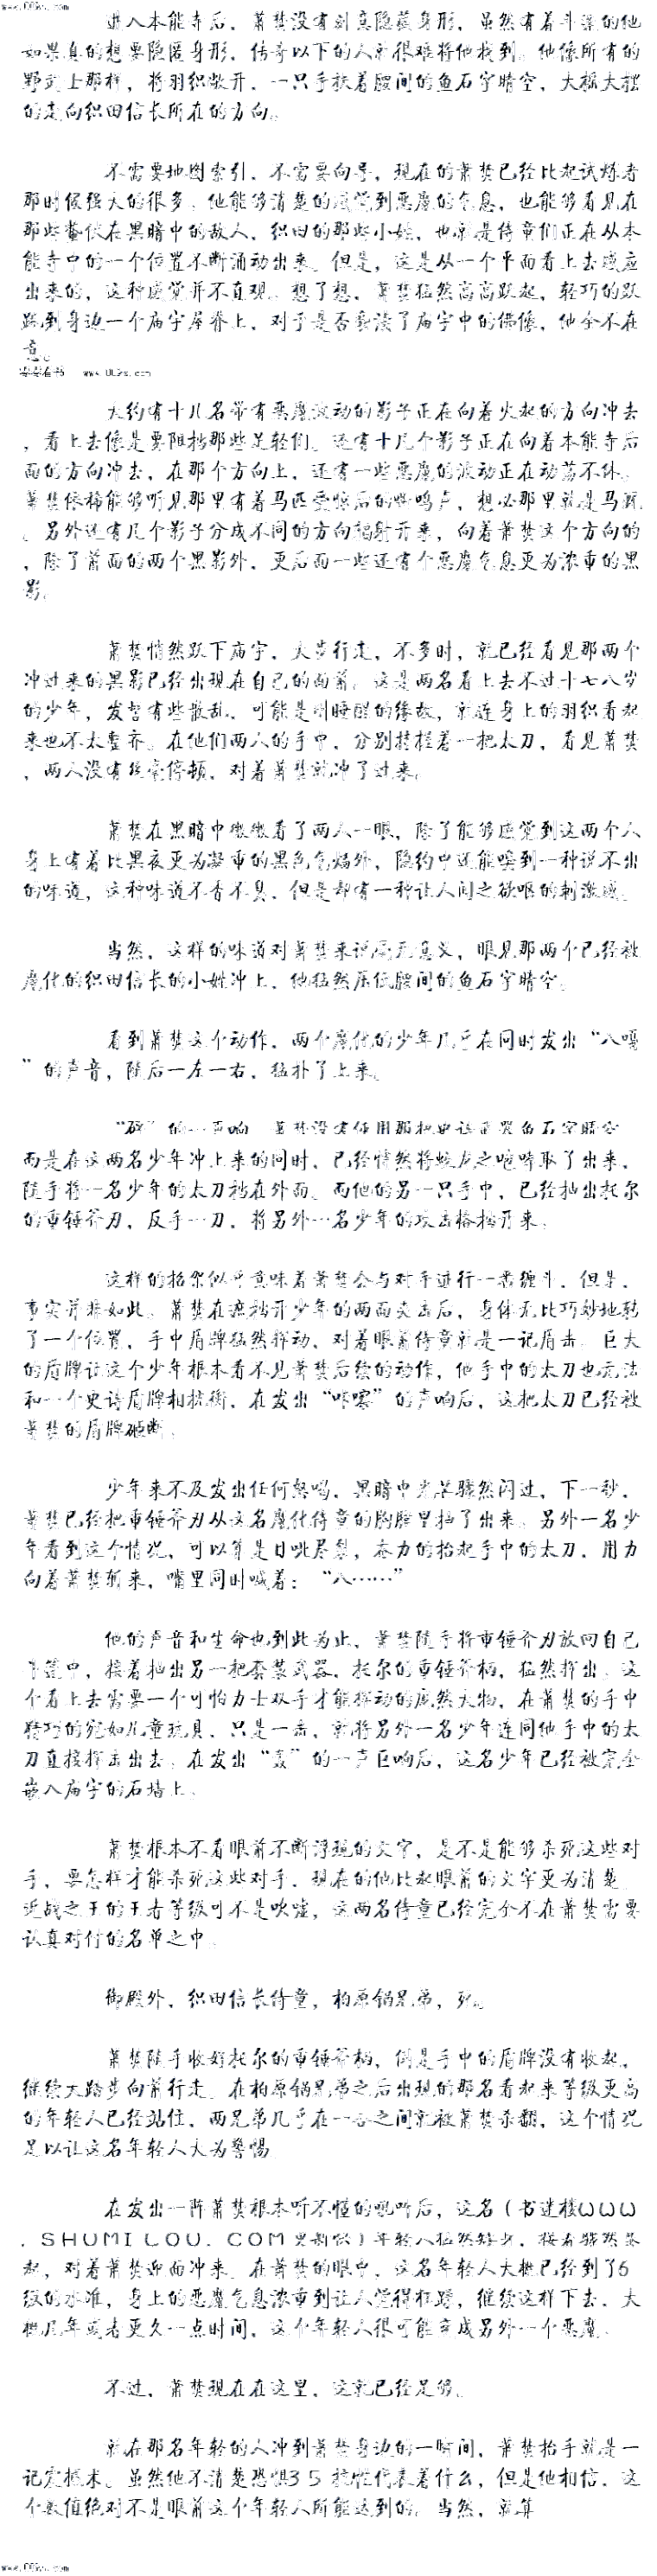 进入本能寺后，萧焚没有刻意隐藏身形，虽然有着斗篷的他
如果真的想要隐匿身形，传奇以下的人都很难将他找到。他像所有的
野武士那样，将羽织敞开，一只手扶着腰间的鱼石字晴空，大摇大摆
的走向织田信长所在的方向。
不需要地图索引，不需要向导，现在的萧焚已经比起试炼者
那时候强大的很多，他能够清楚的感觉到恶魔的气息，也能够看见在
那些蛰伏在黑暗中的敌人，织田的那些小姓，也就是侍童们正在从本
能寺中的一个位置不断涌动出来。但是，这是从一个平面看上去感应
出来的，这种感觉并不直观。想了想，萧焚猛然高高跃起，轻巧的跃
到身边一个庙宇屋脊上，对于是否亵渎了庙宇中的佛像，他全不在
意。
大约有十几名带有恶魔波动的影子正在向着火起的方向冲去
，看上去像是要阻挡那些足轻们。还有十几个影子正在向着本能寺后
面的方向冲去，在那个方向上，还有一些恶魔的波动正在动荡不休。
萧焚依稀能够听见那里有着马匹受惊后的嘶鸣声，想必那里就是马厩
。另外还有几个影子分成不同的方向辐射开来，向着萧焚这个方向的
，除了前面的两个黑影外，更后面一些还有个恶魔气息更为浓重的黑
影。
萧焚悄然跃下庙宇，大步行走，不多时，就已经看见那两个
冲过来的黑影已经出现在自己的面前。这是两名看上去不过十七八岁
的少年，发髻有些散乱，可能是刚睡醒的缘故，就连身上的羽织看起
来也不太整齐。在他们两人的手中，分别持握着一把太刀，看见萧焚
，两人没有丝毫停顿，对着萧焚就冲了过来。
萧焚在黑暗中微微看了两人一眼，除了能够感觉到这两个人
身上有着比黑夜更为凝重的黑色气焰外，隐约中还能嗅到一种说不出
的味道，这种味道不香不臭，但是却有一种让人闻之欲呕的刺激感。
当然，这样的味道对萧焚来说毫无意义，眼见那两个已经被
魔化的织田信长的小姓冲上，他猛然压低腰间的鱼石字晴空。
看到萧焚这个动作，两个魔化的少年几乎在同时发出“八嘎
”的声音，随后一左一右，猛扑了上来。
“砰”的一声响，萧焚没有使用那把史诗武器鱼石字晴空，
而是在这两名少年冲上来的同时，已经悄然将蛟龙之咆哮取了出来，
随手将一名少年的太刀挡在外面。而他的另一只手中，已经抽出托尔
的重锤斧刃，反手一刀，将另外一名少年的攻击格挡开来。
这样的招架似乎意味着萧焚会与对手进行一番缠斗，但是，
事实并非如此。萧焚在遮挡开少年的两面夹击后，身体无比巧妙地转
了一个位置，手中盾牌猛然挥动，对着眼前侍童就是一记盾击。巨大
的盾牌让这个少年根本看不见萧焚后续的动作，他手中的太刀也无法
和一个史诗盾牌相抗衡，在发出“咔嚓”的声响后，这把太刀已经被
萧焚的盾牌砸断。
少年来不及发出任何怒喝，黑暗中光芒骤然闪过，下一秒，
萧焚已经把重锤斧刃从这名魔化侍童的胸膛里抽了出来。另外一名少
年看到这个情况，可以算是目眦尽裂，奋力的抬起手中的太刀，用力
向着萧焚斩来，嘴里同时喊着：“八……”
他的声音和生命也到此为止，萧焚随手将重锤斧刃放回自己
中，接着抽出另一把套装武器，托尔的重锤斧柄，猛然挥出。这
个看上去需要一个可怕力士双手才能挥动的庞然大物，在萧焚的手中
轻巧的宛如儿童玩具，只是一击，就将另外一名少年连同他手中的太
刀直接挥击出去，在发出“轰”的一声巨响后，这名少年已经被完全
嵌入庙宇的石墙上。
萧焚根本不看眼前不断浮现的文字，是不是能够杀死这些对
手，要怎样才能杀死这些对手，现在的他比起眼前的文字更为清楚。
近战之王的王者等级可不是吹嘘，这两名侍童已经完全不在萧焚需要
认真对付的名单之中。
御殿外，织田信长侍童，柏原锅兄弟，死。
萧焚随手收好托尔的重锤斧柄，倒是手中的盾牌没有收起，
继续大踏步向前行走。在柏原锅兄弟之后出现的那名看起来等级更高
的年轻人已经站住，两兄弟几乎在一合之间就被萧焚杀翻，这个情况
足以让这名年轻人大为警惕。
在发出一阵萧焚根本听不懂的吼叫后，这名（书迷楼WWW
．SHUMILOU．COM更新似）年轻人猛然转身，接着骤然暴
起，对着萧焚迎面冲来。在萧焚的眼中，这名年轻人大概已经到了6
级的水准，身上的恶魔气息浓重到让人觉得粘稠，继续这样下去，大
概几年或者更久一点时间，这个年轻人很可能变成另外一个恶魔。
不过，萧焚现在在这里，这就已经足够。
就在那名年轻的人冲到萧焚身边的一瞬间，萧焚抬手就是一
记震慑术。虽然他不清楚恐惧35抗性代表着什么，但是他相信，这
个数值绝对不是眼前这个年轻人所能达到的。当然，就算